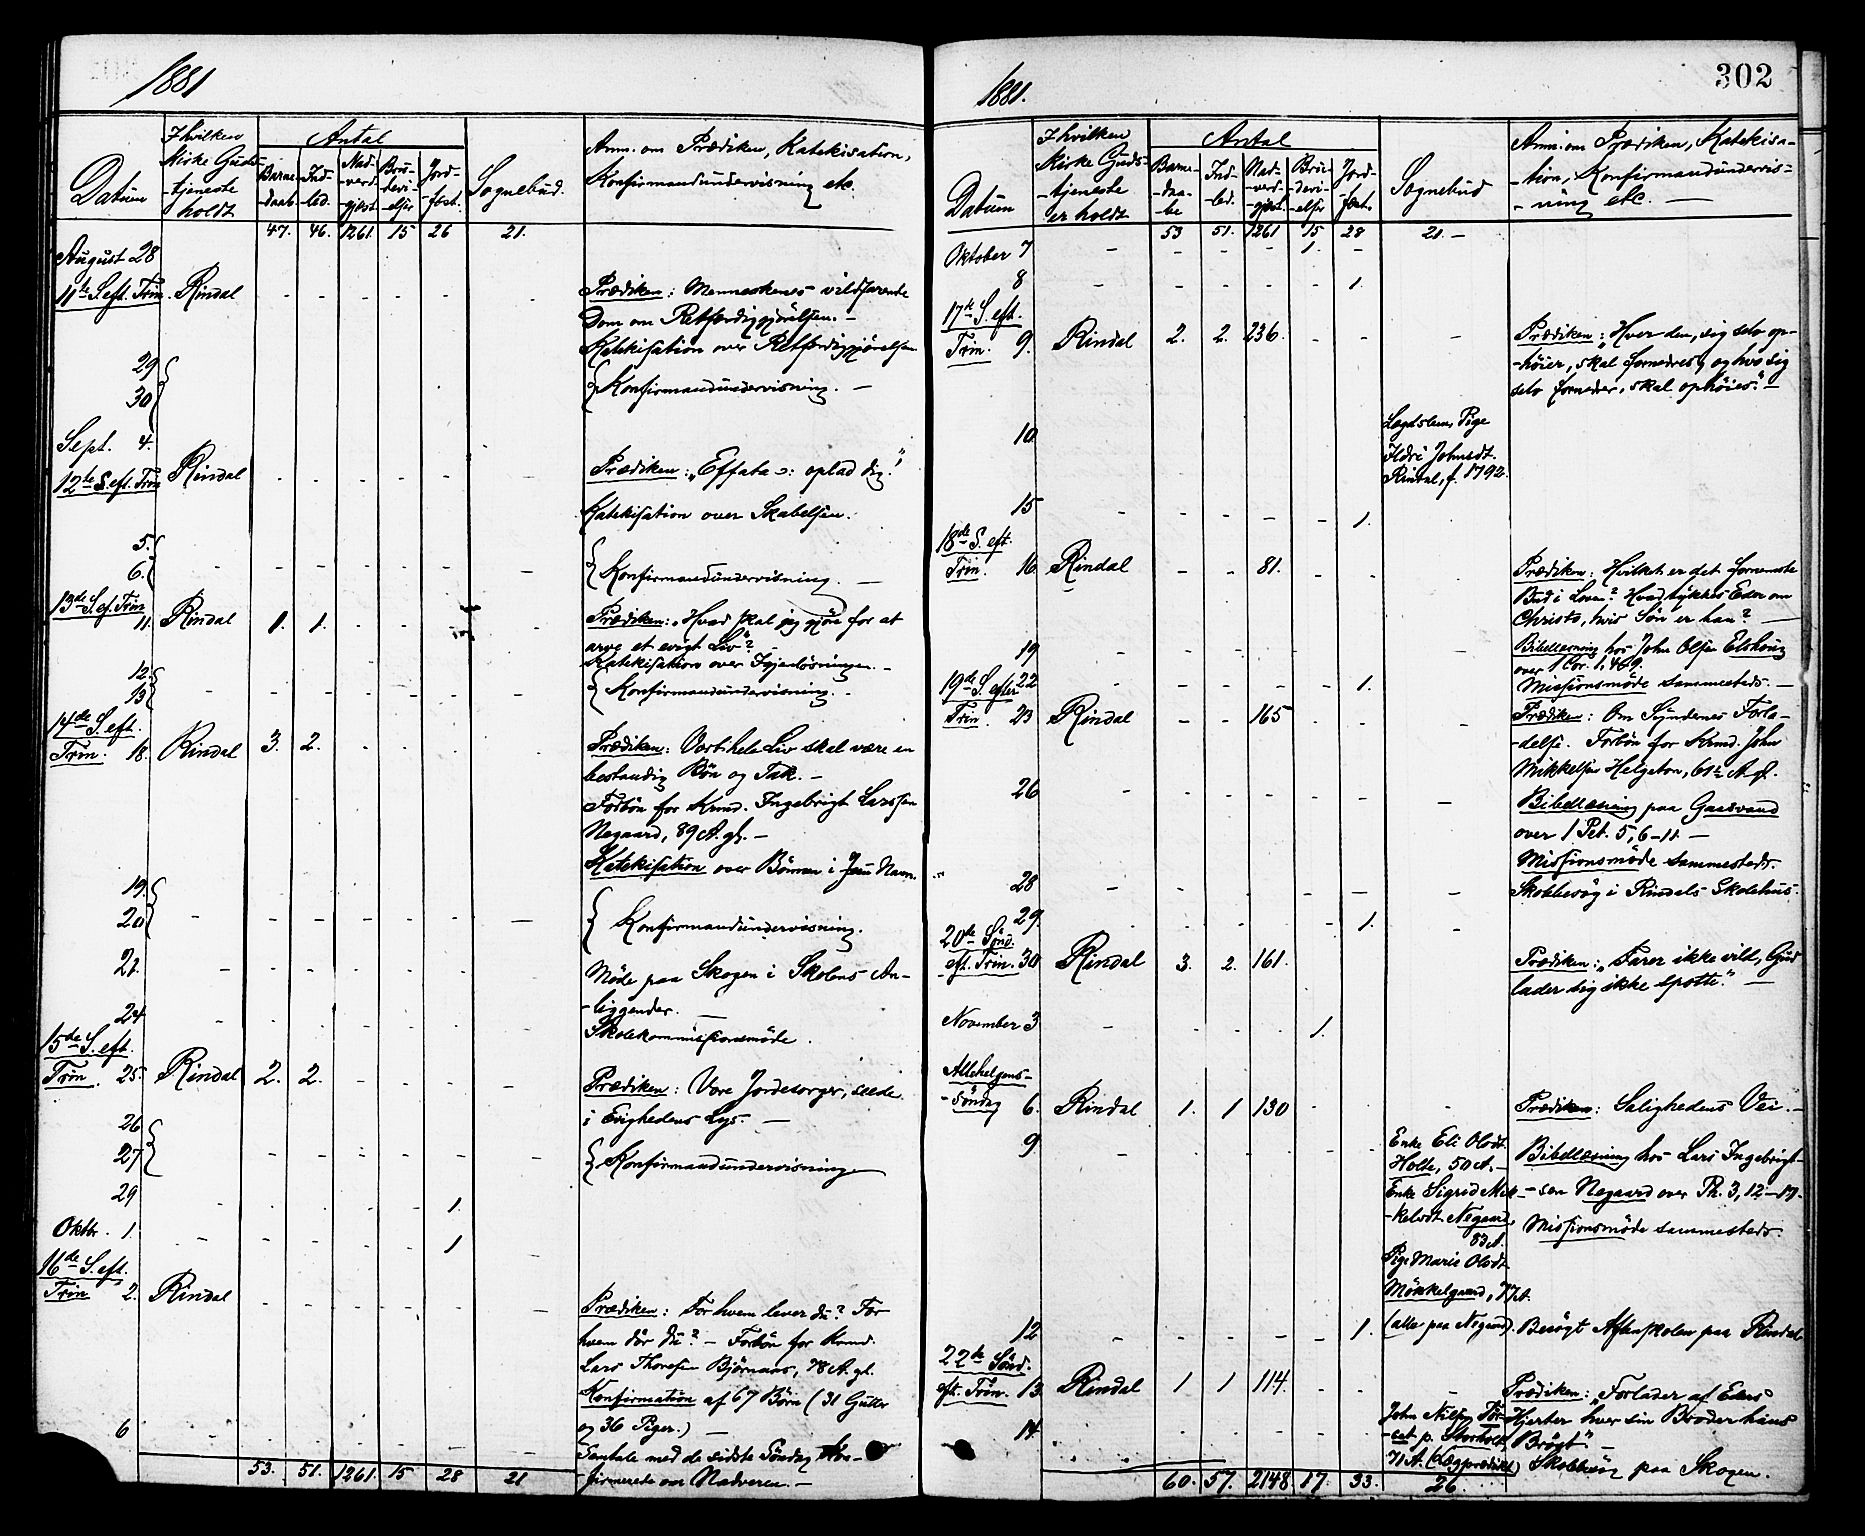 1881
Datum
I hvilken Kirke Guds-tjeneste holdt
Antal
Barne-daab. Ind-led. Nad-verd-gjest. Bru-devi-elser Jord-fæst.
Sognebud.
Anm. om Prædiken, Katekisation,
Konfirmandundervisning etc.
47. 46. 1261. 15 26 21.
August 28
11te S. eft. Trin. Rindal - - - - - -
Prædiken: Menneskenes vildfarende
Dom om Retfærdiggjørelsen. -
Katekisation over Retfærdiggjørelsen
29
30 Konfirmandundervisning. -
Sept. 4.
12te S. eft. Trin Rindal - - - - - -
Prædiken: „Effata ɔ: oplad dig!"
Katekisation over Skabelsen.
5.
6. - - - - - - Konfirmandundervisning. -
13de S. ef. Trin
11. Rindal 1. 1. - - - -
Prædiken: „Hvad skal jeg gjøre for at
arve et evigt Liv"? -
Katekisation over Igjenløsningen. -
12.
13 - - - - - - Konfirmandundervisning. -
14de S. eft.
Trin. 18. Rindal 3. 2. - - - -
Prædiken: Vort hele Liv skal være en
bestandig Bøn og Tak. -
Forbøn for Krmd. Ingebrigt Larssen
Negaard, 89 A. gl. -
Katekisation over Bønnen i Jesu Navn.
19.
20 - - - - - - Konfirmandundervisning.
22. - - - - - -
Møde paa Skogen i Skolens An-
-liggender. -
24 - - - - - - Skolekommissionsmøde.
15de S. eft.
Trin. 25. Rindal 2. 2. - - - -
Prædiken: Vore Jordesorger, seede
i Evighedens Lys. -
26
27 - - - - - - Konfirmandundervisning
29 - - - - 1. -
Oktbr. 1. - - - - 1 -
16de S. eft.
Trin 2. Rindal - - - - - -
Prædiken: For hvem lever du? For
hvem dør du? - Forbøn for Krmd.
Lars Thoresen Bjørnaas, 78 A. gl.
Konfirmation af 67 Børn (31 Gutter
og 36 Piger.) -
6 - - - - - -
Samtale med de sidste Søndag Kon-
-firmerede om Nadveren. -
53. 51. 1261. 15 28 21
1881.
302
Datum
I hvilken Kirke Guds-tjeneste er holdt
Antal
Barne-daa-be Ind-led. Nad-verd-gjest. Bru-devi-elser Jord-fæst.
Sognebud
Anm. om Prædiken, Katekisa-
-tion, Konfirmandundervis-
-ning etc. -
53 51. 1261 15 28 21. -
Oktober 7 - - - - 1. - -
8 - - - - - 1.
17de S. eft.
Trin. 9. Rindal 2. 2. 236. - - -
Prædiken: „Hver den, sig selv op-
-høier, skal fornedres, og hvo sig
selv fornedrer, skal ophøies." -
10.
Lægdslem, Pige
Ildri Johnsdt.
Rindal, f. 1792.
15 - - - - - 1.
18de S. eft.
Trin. 16. Rindal - - 81. - - -
Prædiken: Hvilket er det fornemste
Bud i Loven? Hvad tykkes Eder om
Christo, hvis Søn er han? -
19 - - - - - - -
Bibellæsning hos John Olsen Elshoug
over 1 Cor. 1. 4-9.
Missionsmøde sammesteds. -
22 - - - - - 1. -
19de S. efter
Trin. 23 Rindal - - 165 - - -
Prædiken: Om Syndenes Forla-
-delse. Forbøn for Krmd. John
Mikkelsen Helgeton, 61 A. gl.
26 - - - - - - -
Bibellæsning paa Gaasvand
over 1 Pet. 5, 6-11. -
Missionsmøde sammesteds.
28 - - - - - - -
Skolebesøg i Rindals Skolehus.
29. - - - - - 1. -
20de Sønd.
eft. Trin. 30 Rindal 3. 2. 161.
Prædiken: „Farer ikke vild, Gud
lader sig ikke spotte." -
November 3 - - - - 1.
Allehelgens-
-søndag 6. Rindal 1. 1 130 - - - -
Prædiken: Salighedens Vei. -
9 - - - - - -
Enke Eli Olsdt.
Holte, 50 A. -
Enke Sigrid Mik-
-kelsdt. Negaard,
83 A.
Pige Marie Olsdt.
Mønkelgaard, 77 A.
(alle paa Negaard).
Bibellæsning hos Lars Ingebrigt-
-sen Negaard over Ph. 3, 12-17.
Missionsmøde sammesteds.
12 - - - - - 1.
Besøgt Aftenskolen paa Rindal
22de Sønd.
eft. Trin. 13. Rindal 1 1 114. - - - -
Prædiken: „Forlader af Eders
Hjerter hver sin Broder hans
Brøgt" -
14. - - - - - -
John Nilsen Tør-
-set p. Storholt
71 A. (Lægprædikt)
Skolebesøg paa Skogen.
60. 57. 2148. 17. 33. 26.